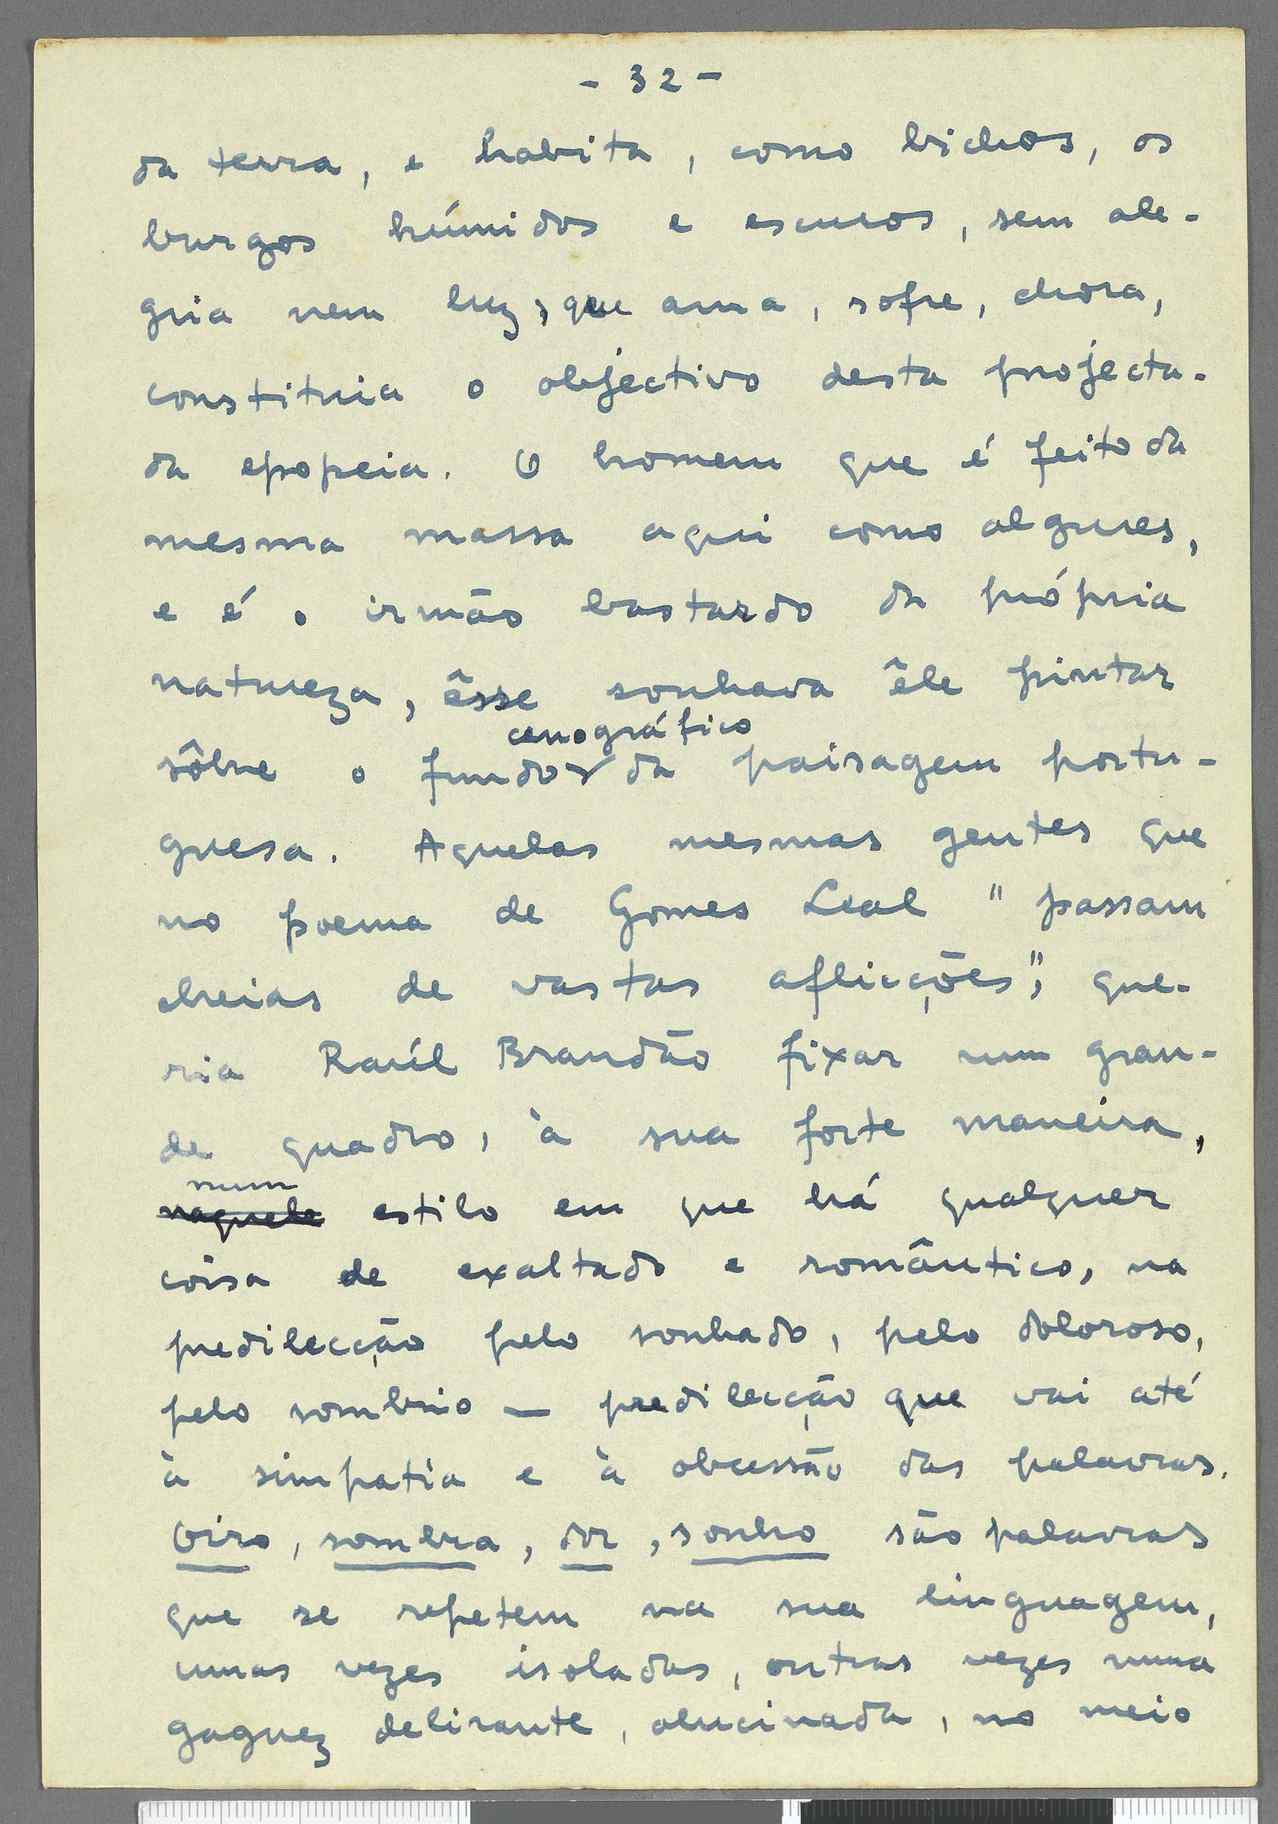 - 32 -
da terra, e habita, como bichos, os
burgos húmidos e escuros, sem ale-
gria nem luz, que ama, sofre, chora,
constituia o objectivo desta projecta-
da epopeia. O homem que é feito da
mesma massa aqui como algures,
e é o irmão bastardo da própria
natureza, êsse sonhava êle pintar
cenográfico
sôbre o fundo da paisagem portu-
guesa. Aquelas mesmas gentes que
no poema de Gomes Leal "passam
cheias de vastas aflicções", que-
ria Raúl Brandão fixar num gran-
de quadro, à sua forte maneira,
num
naquele estilo em que há qualquer
coisa de exaltado e romântico, na
predilecção pelo sonhado, pelo doloroso,
pelo sombrio — predilecção que vai até
à simpatia e à obcessão das palavras.
Oiro, sombra, dor, sonho são palavras
que se repetem na sua linguagem,
umas vezes isoladas, outras vezes numa
gaguez delirante, alucinada, no meio